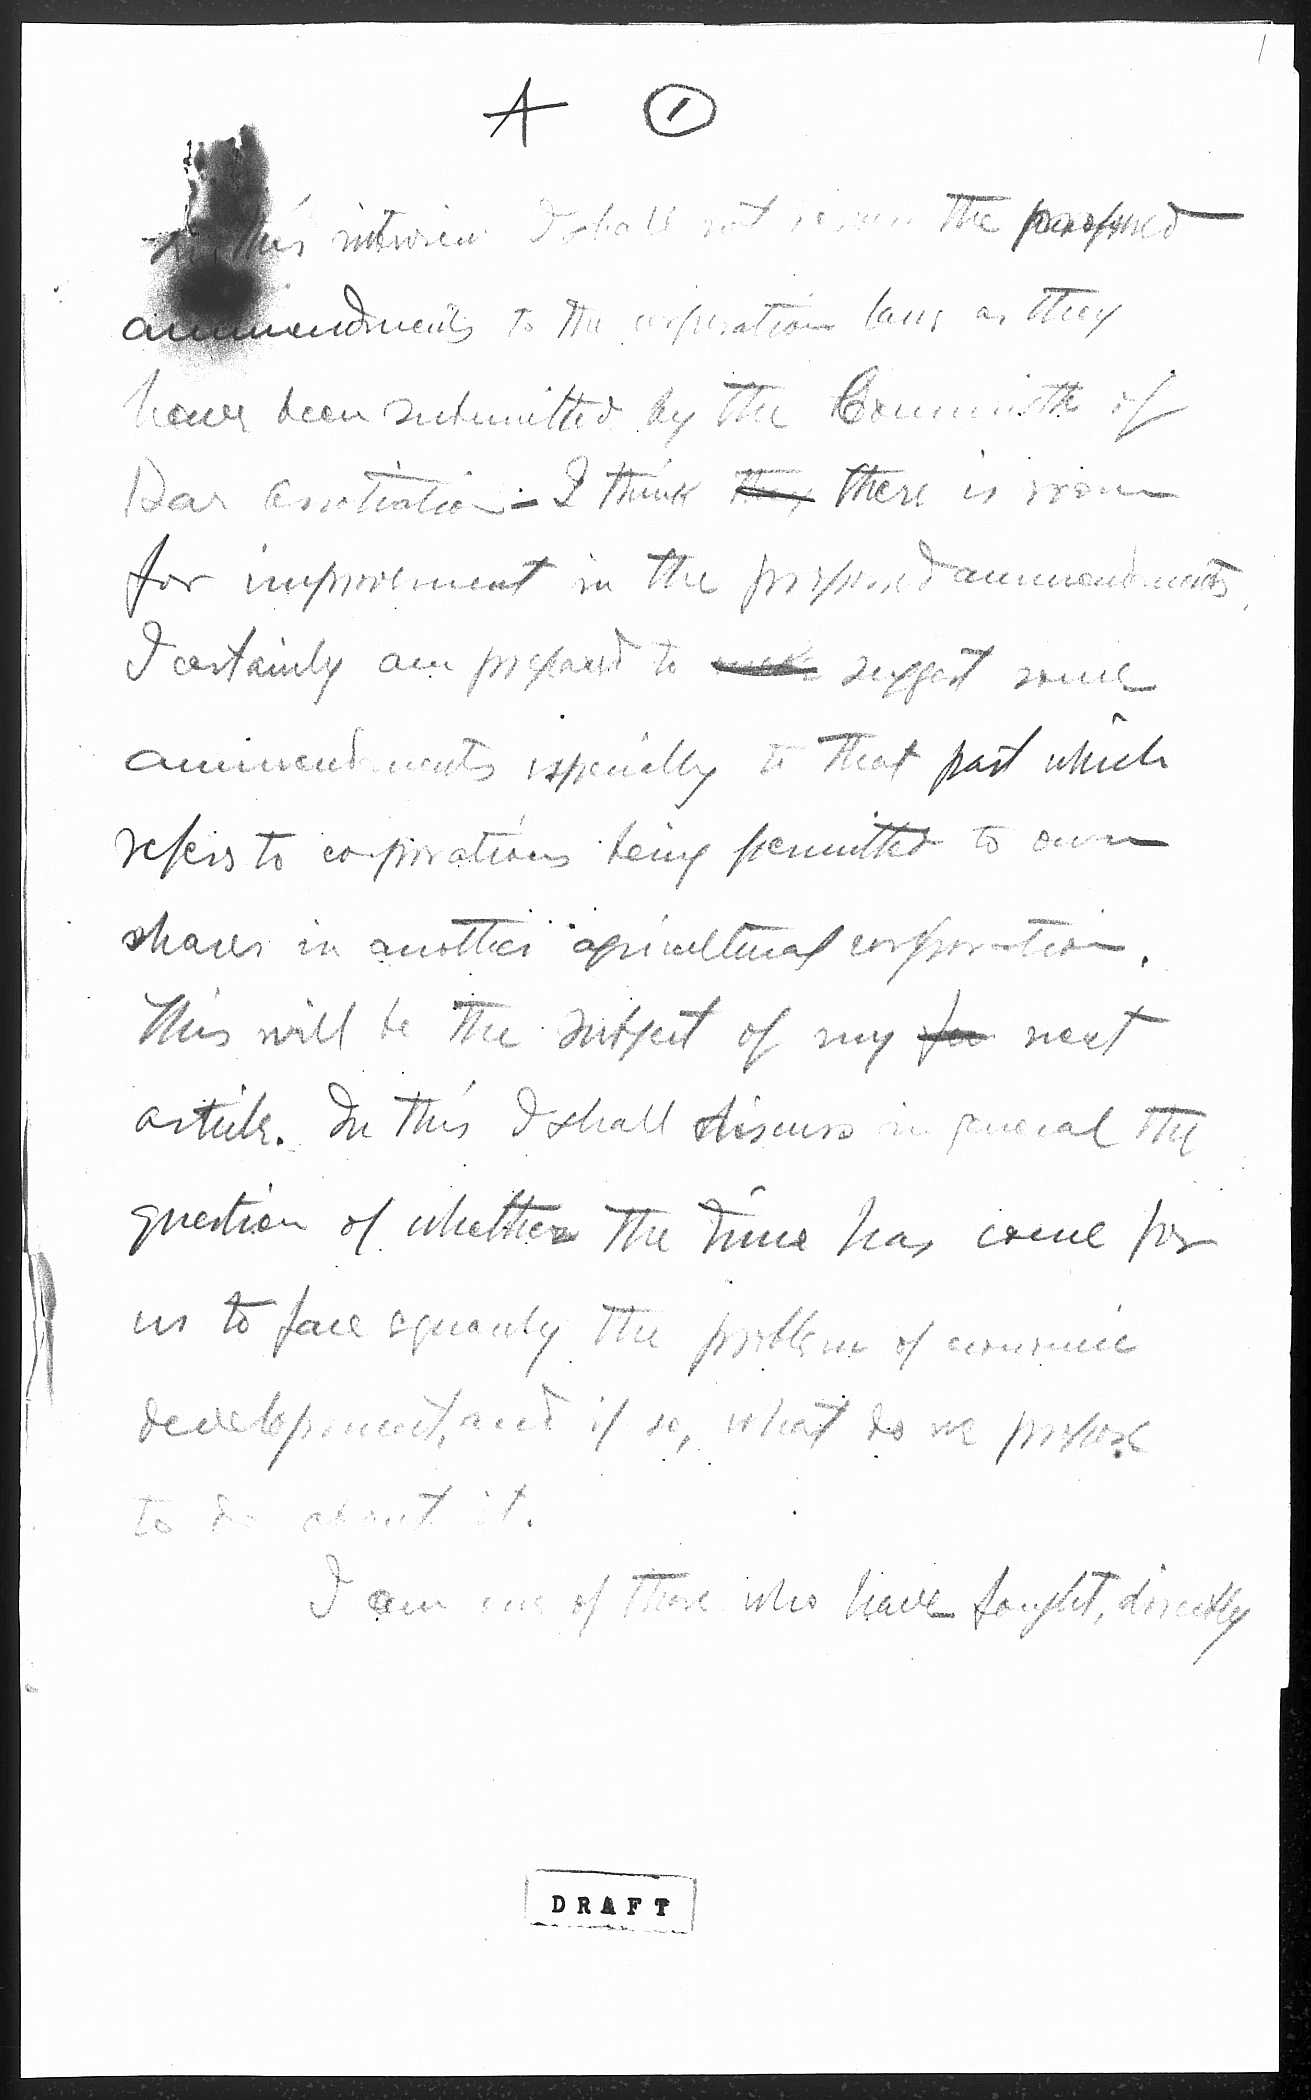 1
A ①
In this interview I shall not discuss the proposed
ammendments to the corporation laws as they
have been submitted by the Committe of
Bar Assotiation - I think they there is room
for improvement in the proposed ammendments,
I certainly am prepared to make suggest some
ammendments especially to that part which
refers to corporations being permitted to own
shares in another agricultural corporation.
This will be the subject of my next
article. In this I shall discuss in general the
question of whether the time has come for
us to face squarely the problem of economic
development, and if so, what do we propose
to do about it.
I am one of those who have fought, directly
DRAFT